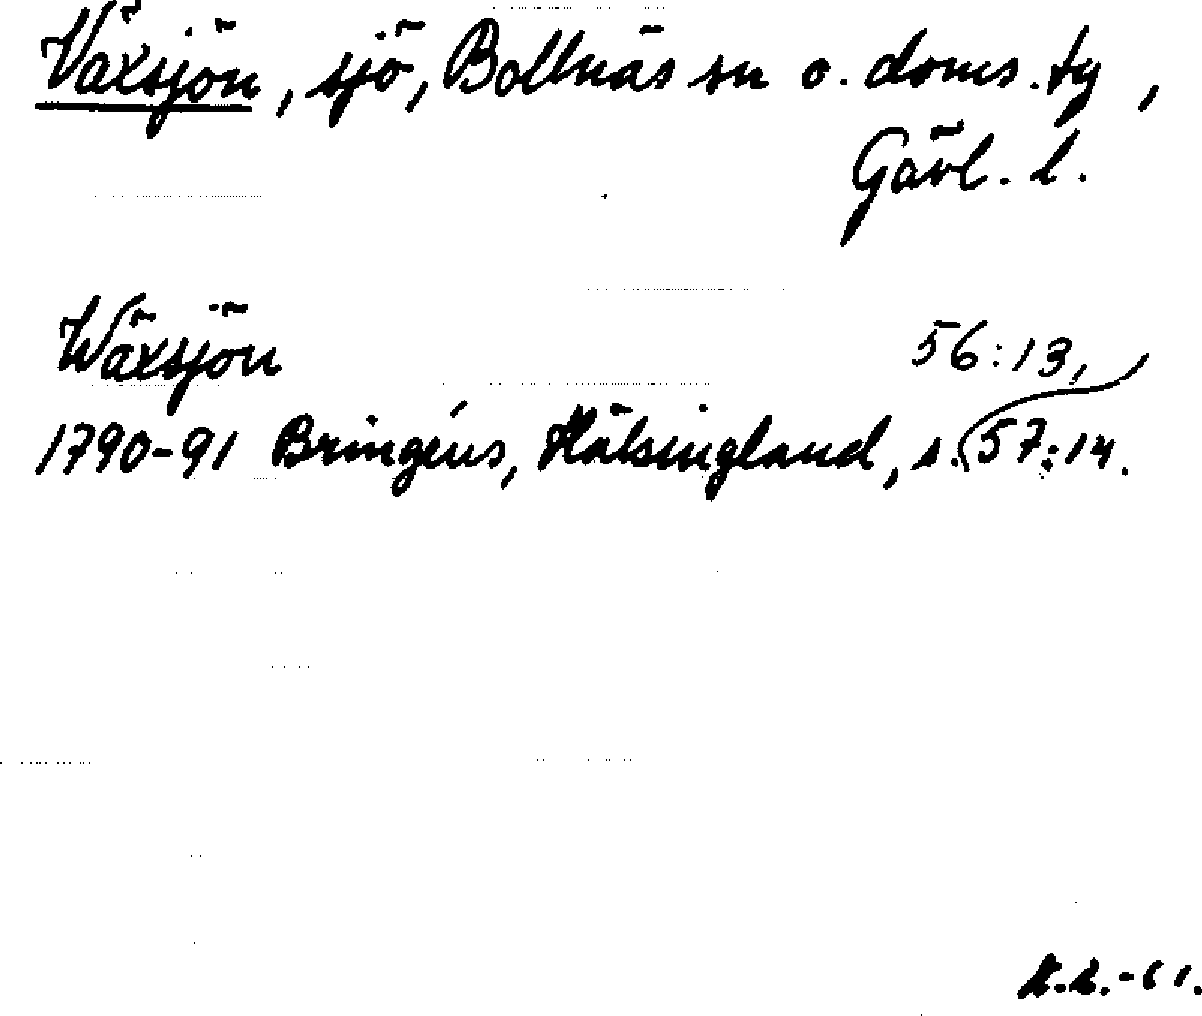 Växsjön, sjö, Bollnäs sn o. doms. tg,
Gävl. l.
Wäxsjön 56:13,
1790-91 Bringéus, Hälsingland, s. 57:14.